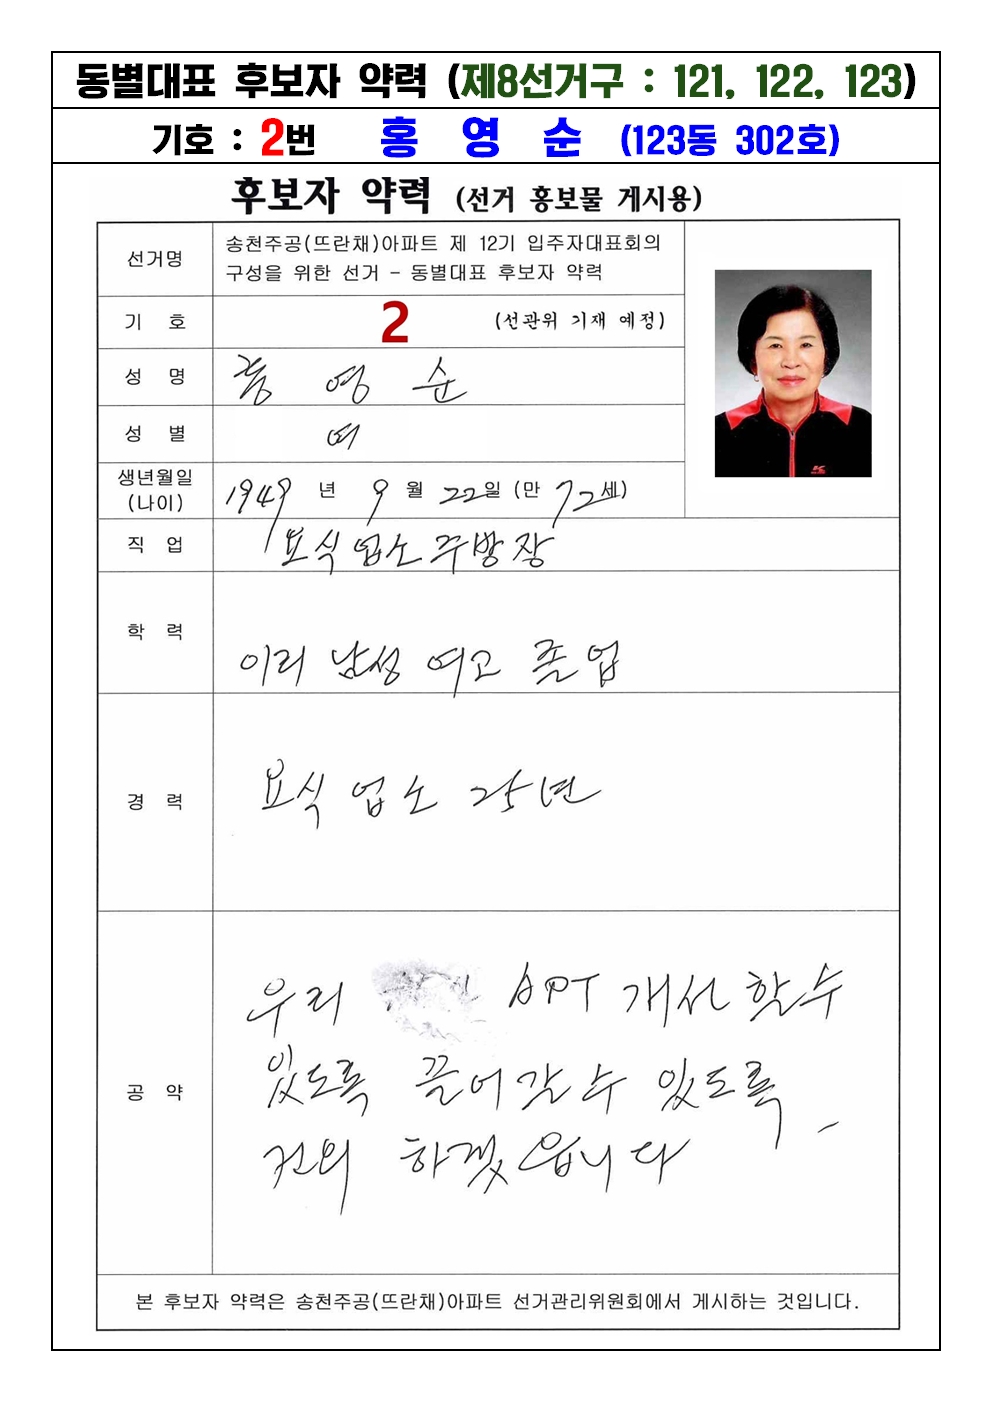 동별대표 후보자 약력 (제8선거구 : 121, 122, 123)
기호 : 2번 홍 영 순 (123동 302호)
후보자 약력 (선거 홍보물 게시용)
선거명
송천주공(뜨란채)아파트 제 12기 입주자대표회의
구성을 위한 선거 - 동별대표 후보자 약력
기 호
2 (선관위 기재 예정)
성 명
홍 영 순
성 별
여
생년월일
(나이)
1949 년 9 월 22일 (만 72세)
직 업
요식업소 주방장
학 력
이리 남성 여고 졸업
경 력
요식 업소 25년
공 약
우리 APT 개선 할수
있도록 끌어갈 수 있도록
건의 하겠읍니다
본 후보자 약력은 송천주공(뜨란채)아파트 선거관리위원회에서 게시하는 것입니다.